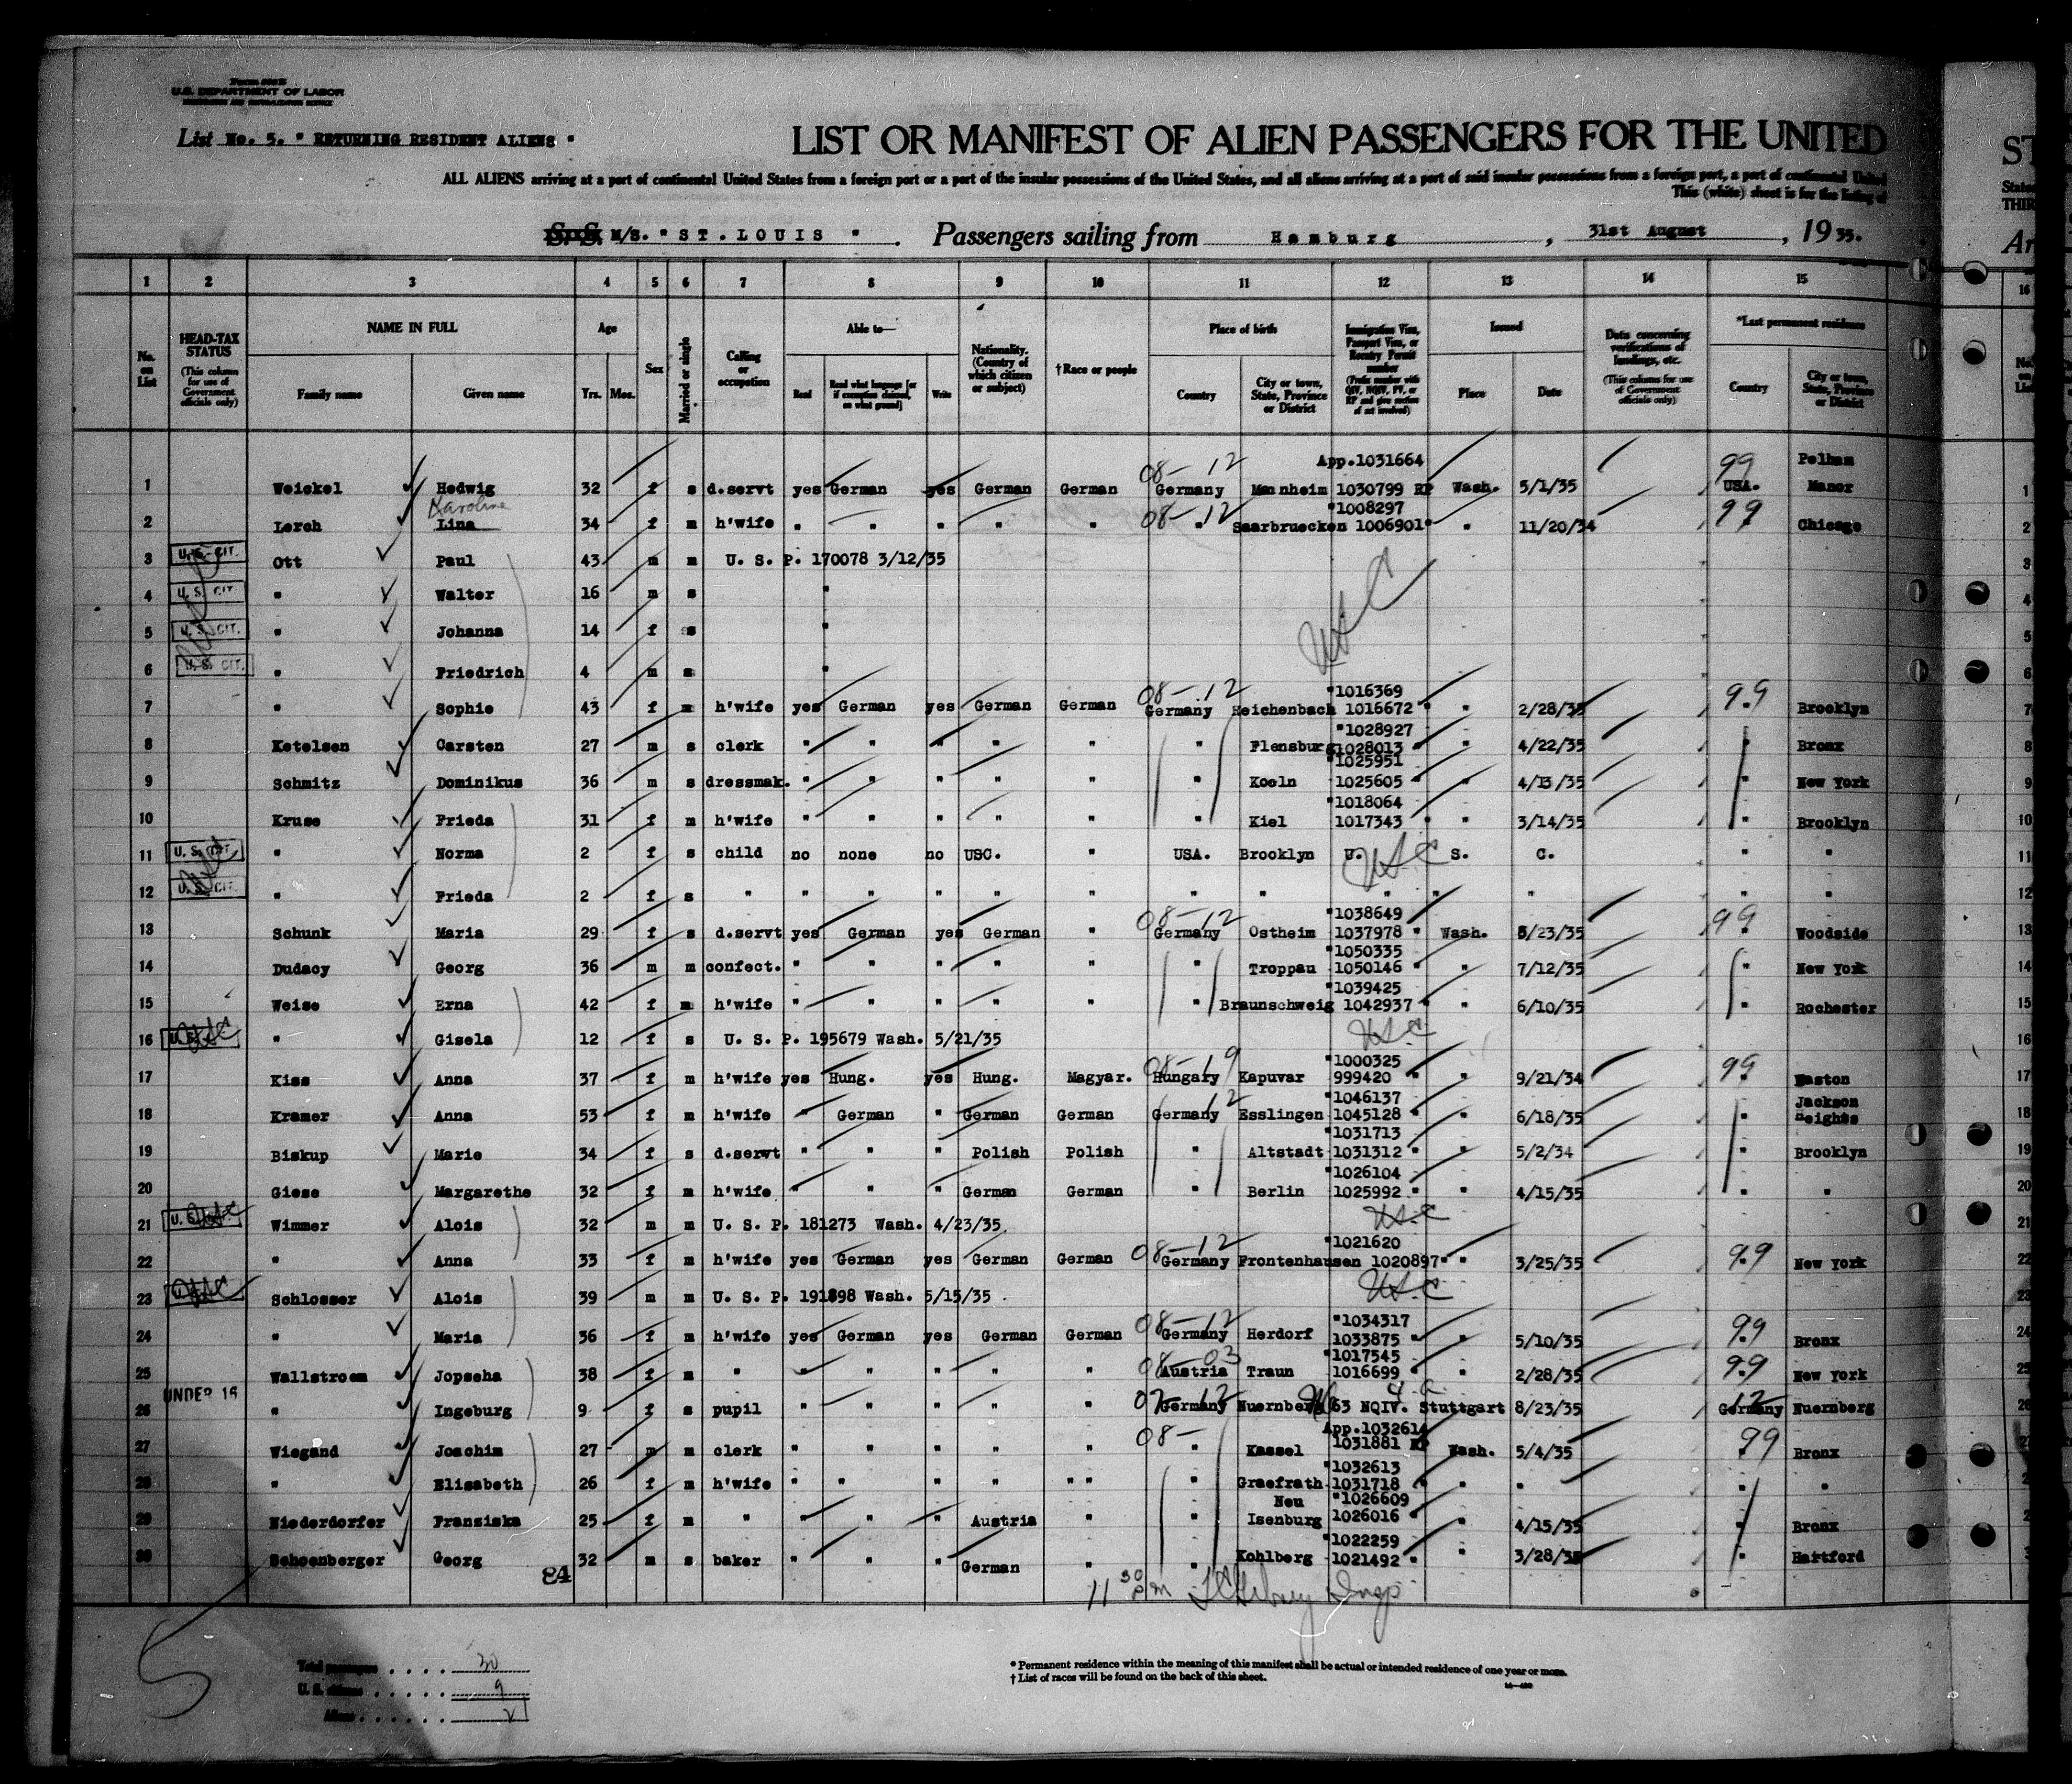 Form 500 B
U.S. DEPARTMENT OF LABOR
IMMIGRATION AND NATURALIZATION SERVICE
List No. 5. " RETURNING RESIDENT ALIENS "
LIST OR MANIFEST OF ALIEN PASSENGERS FOR THE UNITED
ALL ALIENS arriving at a port of continental United States from a foreign port or a port of the insular possessions of the United States, and all aliens arriving at a port of said insular possessions from a foreign port, a port of continental United
This (white) sheet is for the listing of
S.S. M/S. " ST. LOUIS " . Passengers sailing from Hamburg , 31st August , 1935.
1 2 3 4 5 6 7 8 9 10 11 12 13 14 15
No. on List
HEAD-TAX STATUS (This column for use of Government officials only)
NAME IN FULL Family name Given name
Age Yrs. Mos.
Sex
Married or single
Calling or occupation
Able to— Read Read what language [or if exemption claimed, on what ground] Write
Nationality. (Country of which citizen or subject)
†Race or people
Place of birth Country City or town, State, Province or District
Immigration Visa, Passport Visa, or Reentry Permit number (Prefix number with QIV, NQIV, PV, or RP and give section of act involved)
Issued Place Date
Data concerning verifications of landings, etc. (This column for use of Government officials only)
*Last permanent residence Country City or town, State, Province or District
08-12 App.1031664 99 Pelham
1 Weickel Hedwig 32 f s d.servt yes German yes German German Germany Mannheim 1030799 RP Wash. 5/1/35 USA. Manor
Karoline "1008297
2 Lerch Lina 34 f m h'wife " " " " " 08-12 " Saarbruecken 1006901" " 11/20/34 99 Chicago
3 U. S. CIT. Ott Paul 43 m m U. S. P. 170078 3/12/35
4 U. S. CIT. " Walter 16 m s "
5 U. S. CIT. " Johanna 14 f s " USC
6 U. S. CIT. " Friedrich 4 m s "
08-12 "1016369
7 " Sophie 43 f m h'wife yes German yes German German Germany Reichenbach 1016672 " " 2/28/35 99 Brooklyn
"1028927
8 Ketelsen Carsten 27 m s clerk " " " " " " Flensburg 1028013 " " 4/22/35 " Bronx
"1025951
9 Schmitz Dominikus 36 m s dressmak. " " " " " " Koeln 1025605 " " 4/13/35 " New York
"1018064
10 Kruse Frieda 31 f m h'wife " " " " " " Kiel 1017343 " " 3/14/35 " Brooklyn
11 U. S. CIT. " Norma 2 f s child no none no USC. " USA. Brooklyn U. S. C. " "
USC
12 U. S. CIT. " Frieda 2 f s " " " " " " " " " " " " "
08-12 "1038649
13 Schunk Maria 29 f s d.servt yes German yes German " Germany Ostheim 1037978 " Wash. 5/23/35 99 Woodside
"1050335
14 Dudacy Georg 36 m m confect. " " " " " " Troppau 1050146 " " 7/12/35 " New York
"1039425
15 Weise Erna 42 f m h'wife " " " " " " Braunschweig 1042937 " " 6/10/35 " Rochester
16 USC " Gisela 12 f s U. S. P. 195679 Wash. 5/21/35 USC
08-19 "1000325
17 Kiss Anna 37 f m h'wife yes Hung. yes Hung. Magyar. Hungary Kapuvar 999420 " " 9/21/34 99 Easton
12 "1046137 Jackson
18 Kramer Anna 53 f m h'wife " German " German German Germany Esslingen 1045128 " " 6/18/35 " Heights
"1031713
19 Biskup Marie 34 f s d.servt " " " Polish Polish " Altstadt 1031312 " " 5/2/34 " Brooklyn
"1026104
20 Giese Margarethe 32 f m h'wife " " " German German " Berlin 1025992 " " 4/15/35 " "
21 USC Wimmer Alois 32 m m U. S. P. 181273 Wash. 4/23/35 USC
08-12 "1021620
22 " Anna 33 f m h'wife yes German yes German German Germany Frontenhausen 1020897" " 3/25/35 99 New York
23 USC Schlosser Alois 39 m m U. S. P. 191898 Wash. 5/15/35 . USC
08-12 "1034317
24 " Maria 36 f m h'wife yes German yes German German Germany Herdorf 1033875 " " 5/10/35 99 Bronx
08-03 "1017545
25 Wallstroem Jopseha 38 f m " " " " " " Austria Traun 1016699 " " 2/28/35 99 New York
UNDER 16 07-12 12
26 " Ingeburg 9 f s pupil " " " " " Germany Nuernberg 63 NQIV. Stuttgart 8/23/35 Germany Nuernberg
08- App.1032614
27 Wiegand Joachim 27 m m clerk " " " " " " Kassel 1031881 RP Wash. 5/4/35 99 Bronx
"1032613
28 " Elisabeth 26 f m h'wife " " " " " " " Graefrath 1031718 " " " " "
Neu "1026609
29 Niederdorfer Franziska 25 f m " " " " Austria " " Isenburg 1026016 " " 4/15/35 " Bronx
"1022259
30 Schoenberger Georg 32 m s baker " " " German " " Kohlberg 1021492 " " 3/28/35 " Hartford
84
11 30 pm Insp.
5
Total passengers . . . . 30
U. S. citizens . . . . . 9
Aliens . . . . . . 21
* Permanent residence within the meaning of this manifest shall be actual or intended residence of one year or more.
† List of races will be found on the back of this sheet.
ST
States
THIR
Ar
16